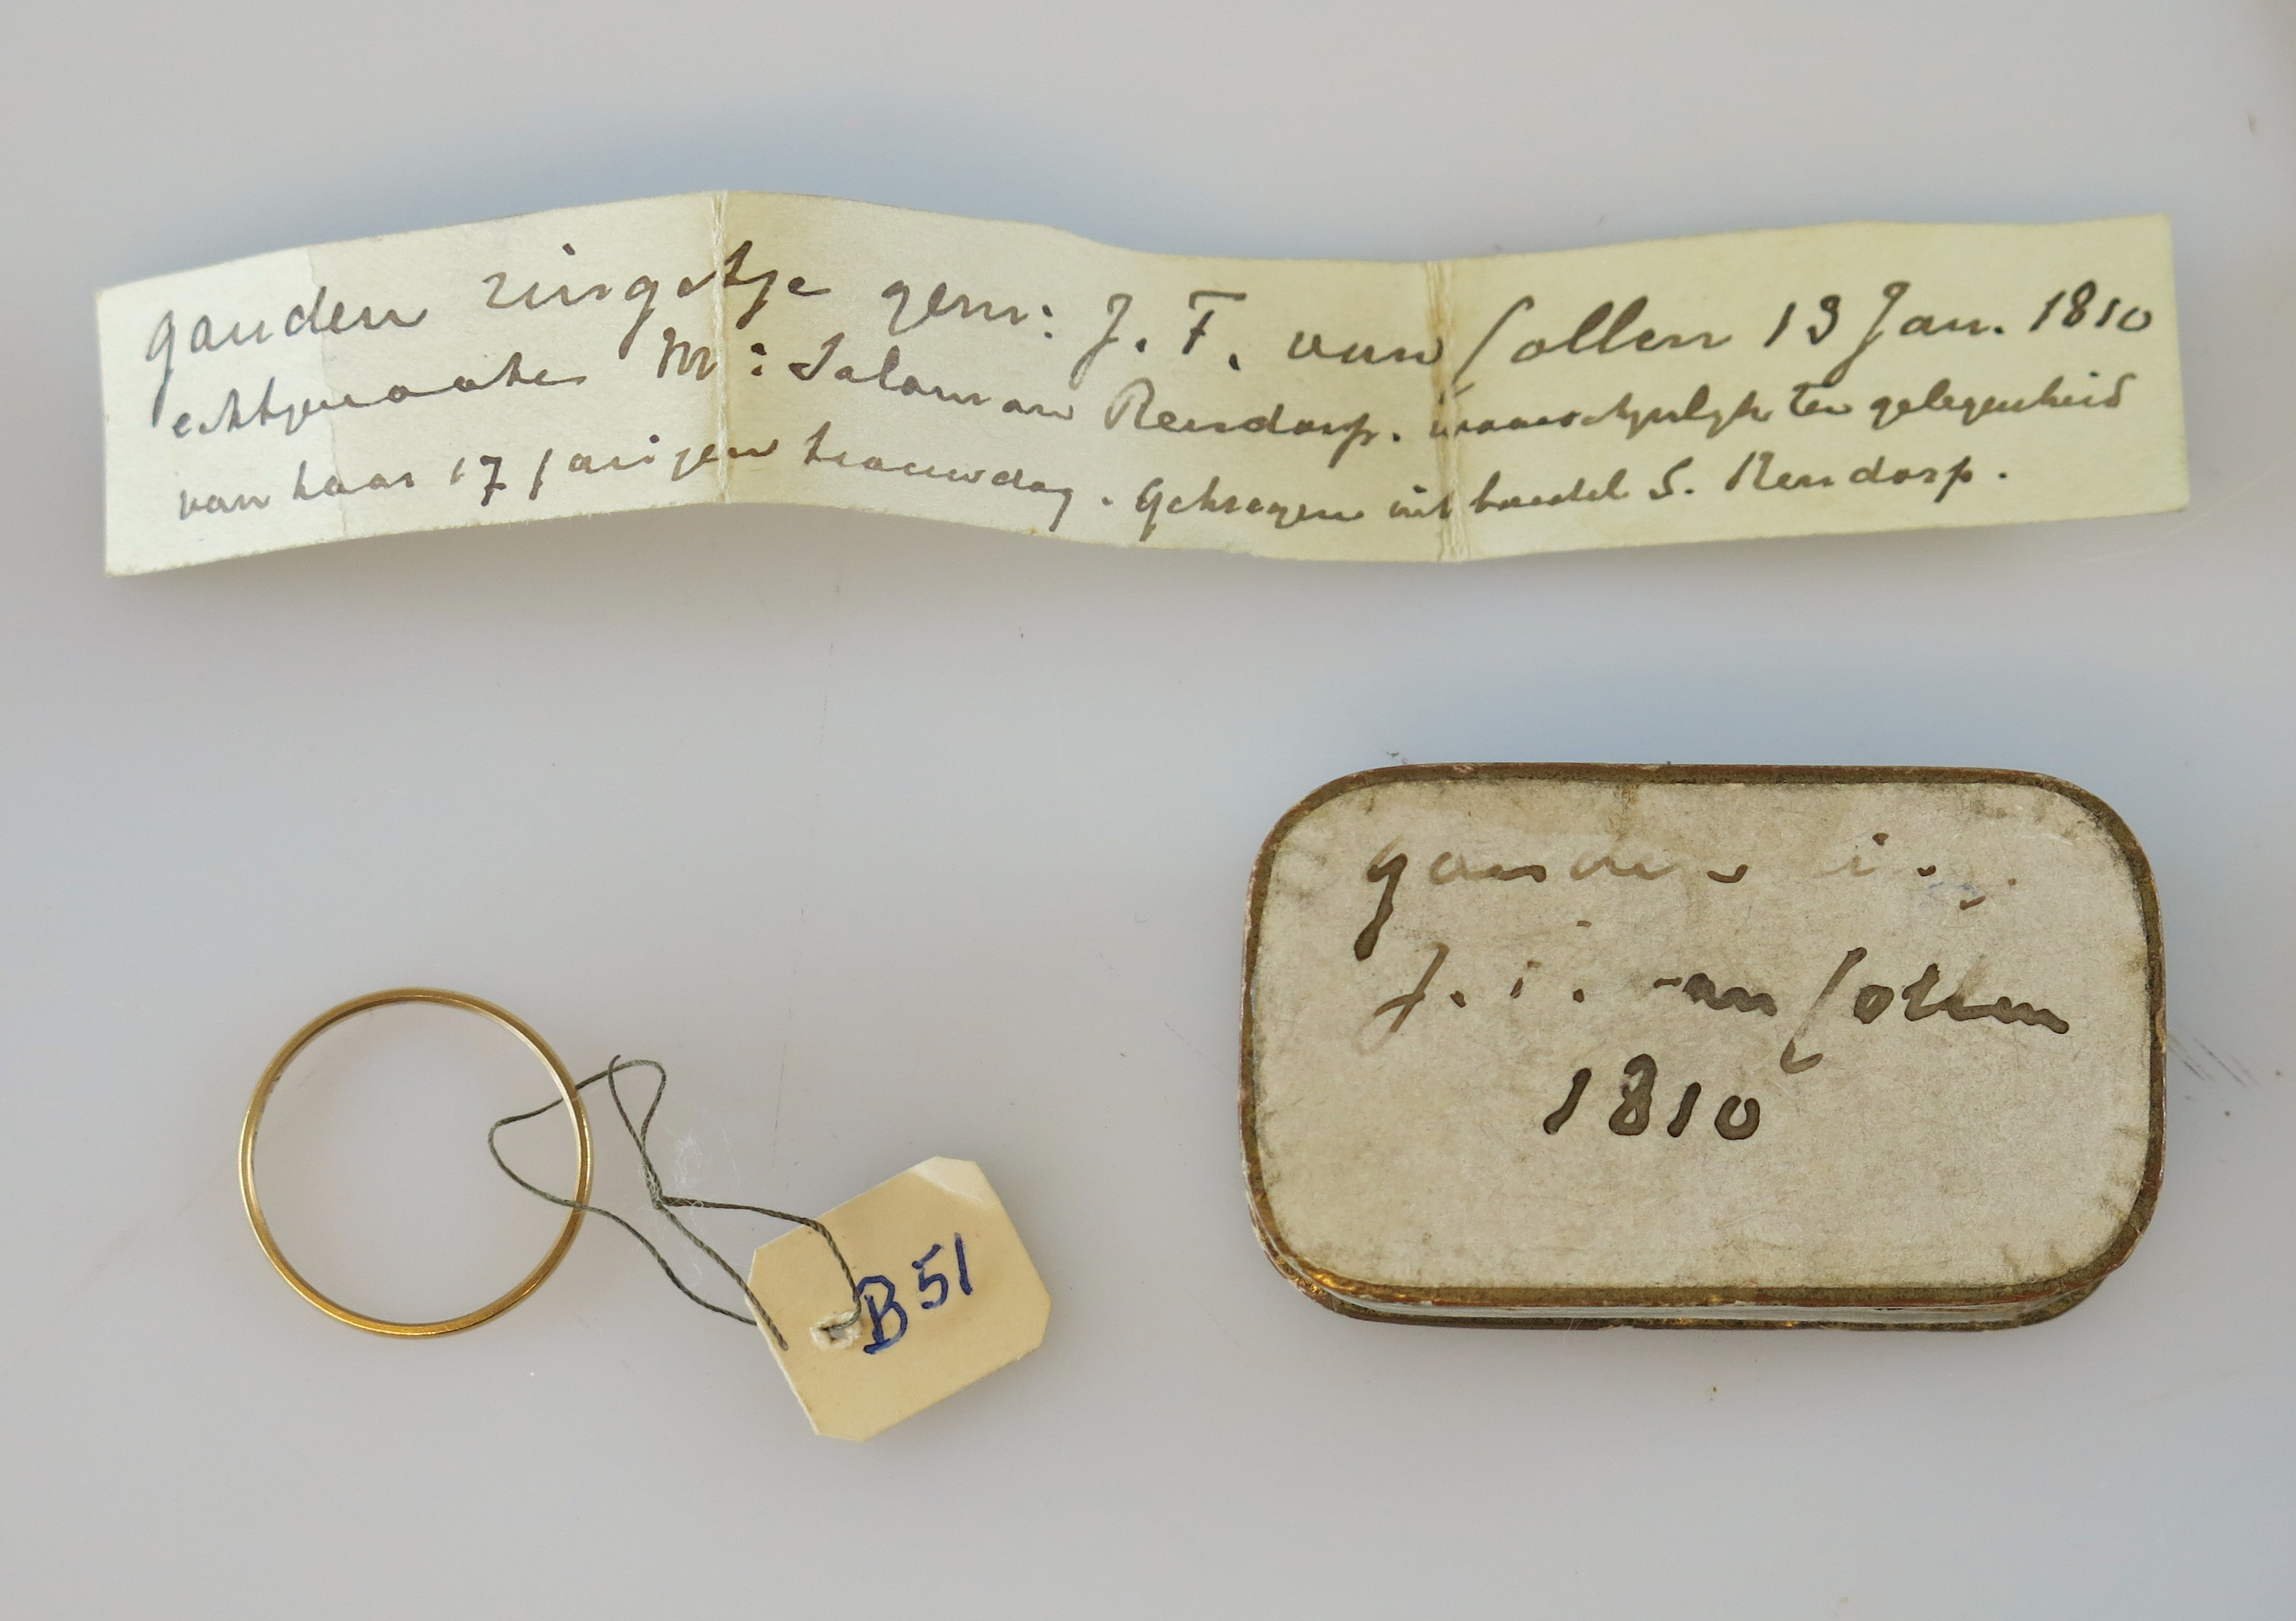 gouden ringetje gem: J. F. van Collen 13 Jan. 1810
echtgenoote Mr: Salomon Rendorp. waarschynlyk ten gelegenheid
van haar 17 jarigen trouwdag. Gekregen uit boedel S. Rendorp.
gouden
J. F. van Collen
1810
B 51